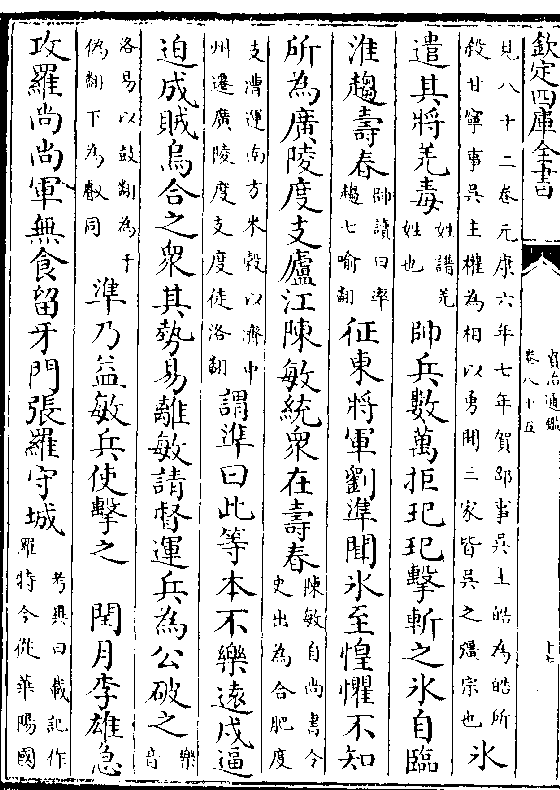 欽定四庫全書
資治通鑑
卷八十五
十七
見八十二卷元康六年七年賀邵事吳主皓為皓所
殺甘寧事吳主權為相以勇聞三家皆吳之彊宗也
冰
遣其將羌毒
姓譜羌
姓也
帥兵數萬拒玘玘擊斬之冰自臨
淮趨壽春
帥讀曰率
趨七喻翻
征東將軍劉準聞冰至惶懼不知
所為廣陵度支廬江陳敏統衆在壽春
陳敏自尚書令
史出為合肥度
支漕運南方米穀以濟中
州遷廣陵度支度徒洛翻
謂準曰此等本不樂遠戍逼
迫成賊烏合之衆其勢易離敏請督運兵為公破之
樂
音
洛易以鼓翻為于
偽翻下為叡同
準乃益敏兵使擊之　閏月李雄急
攻羅尚尚軍無食留牙門張羅守城
考異曰載記作
羅特今從華陽國